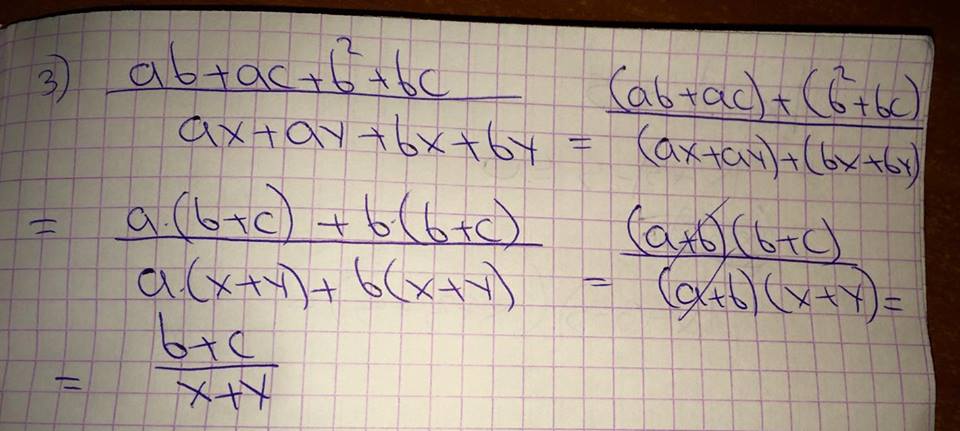 3) (ab+ac+b²+bc)/(ax+ay+bx+by) = ((ab+ac)+(b²+bc))/((ax+ay)+(bx+by))
= (a·(b+c)+b·(b+c))/(a·(x+y)+b(x+y)) = ((a+b)(b+c))/((a+b)(x+y)) =
= (b+c)/(x+y)